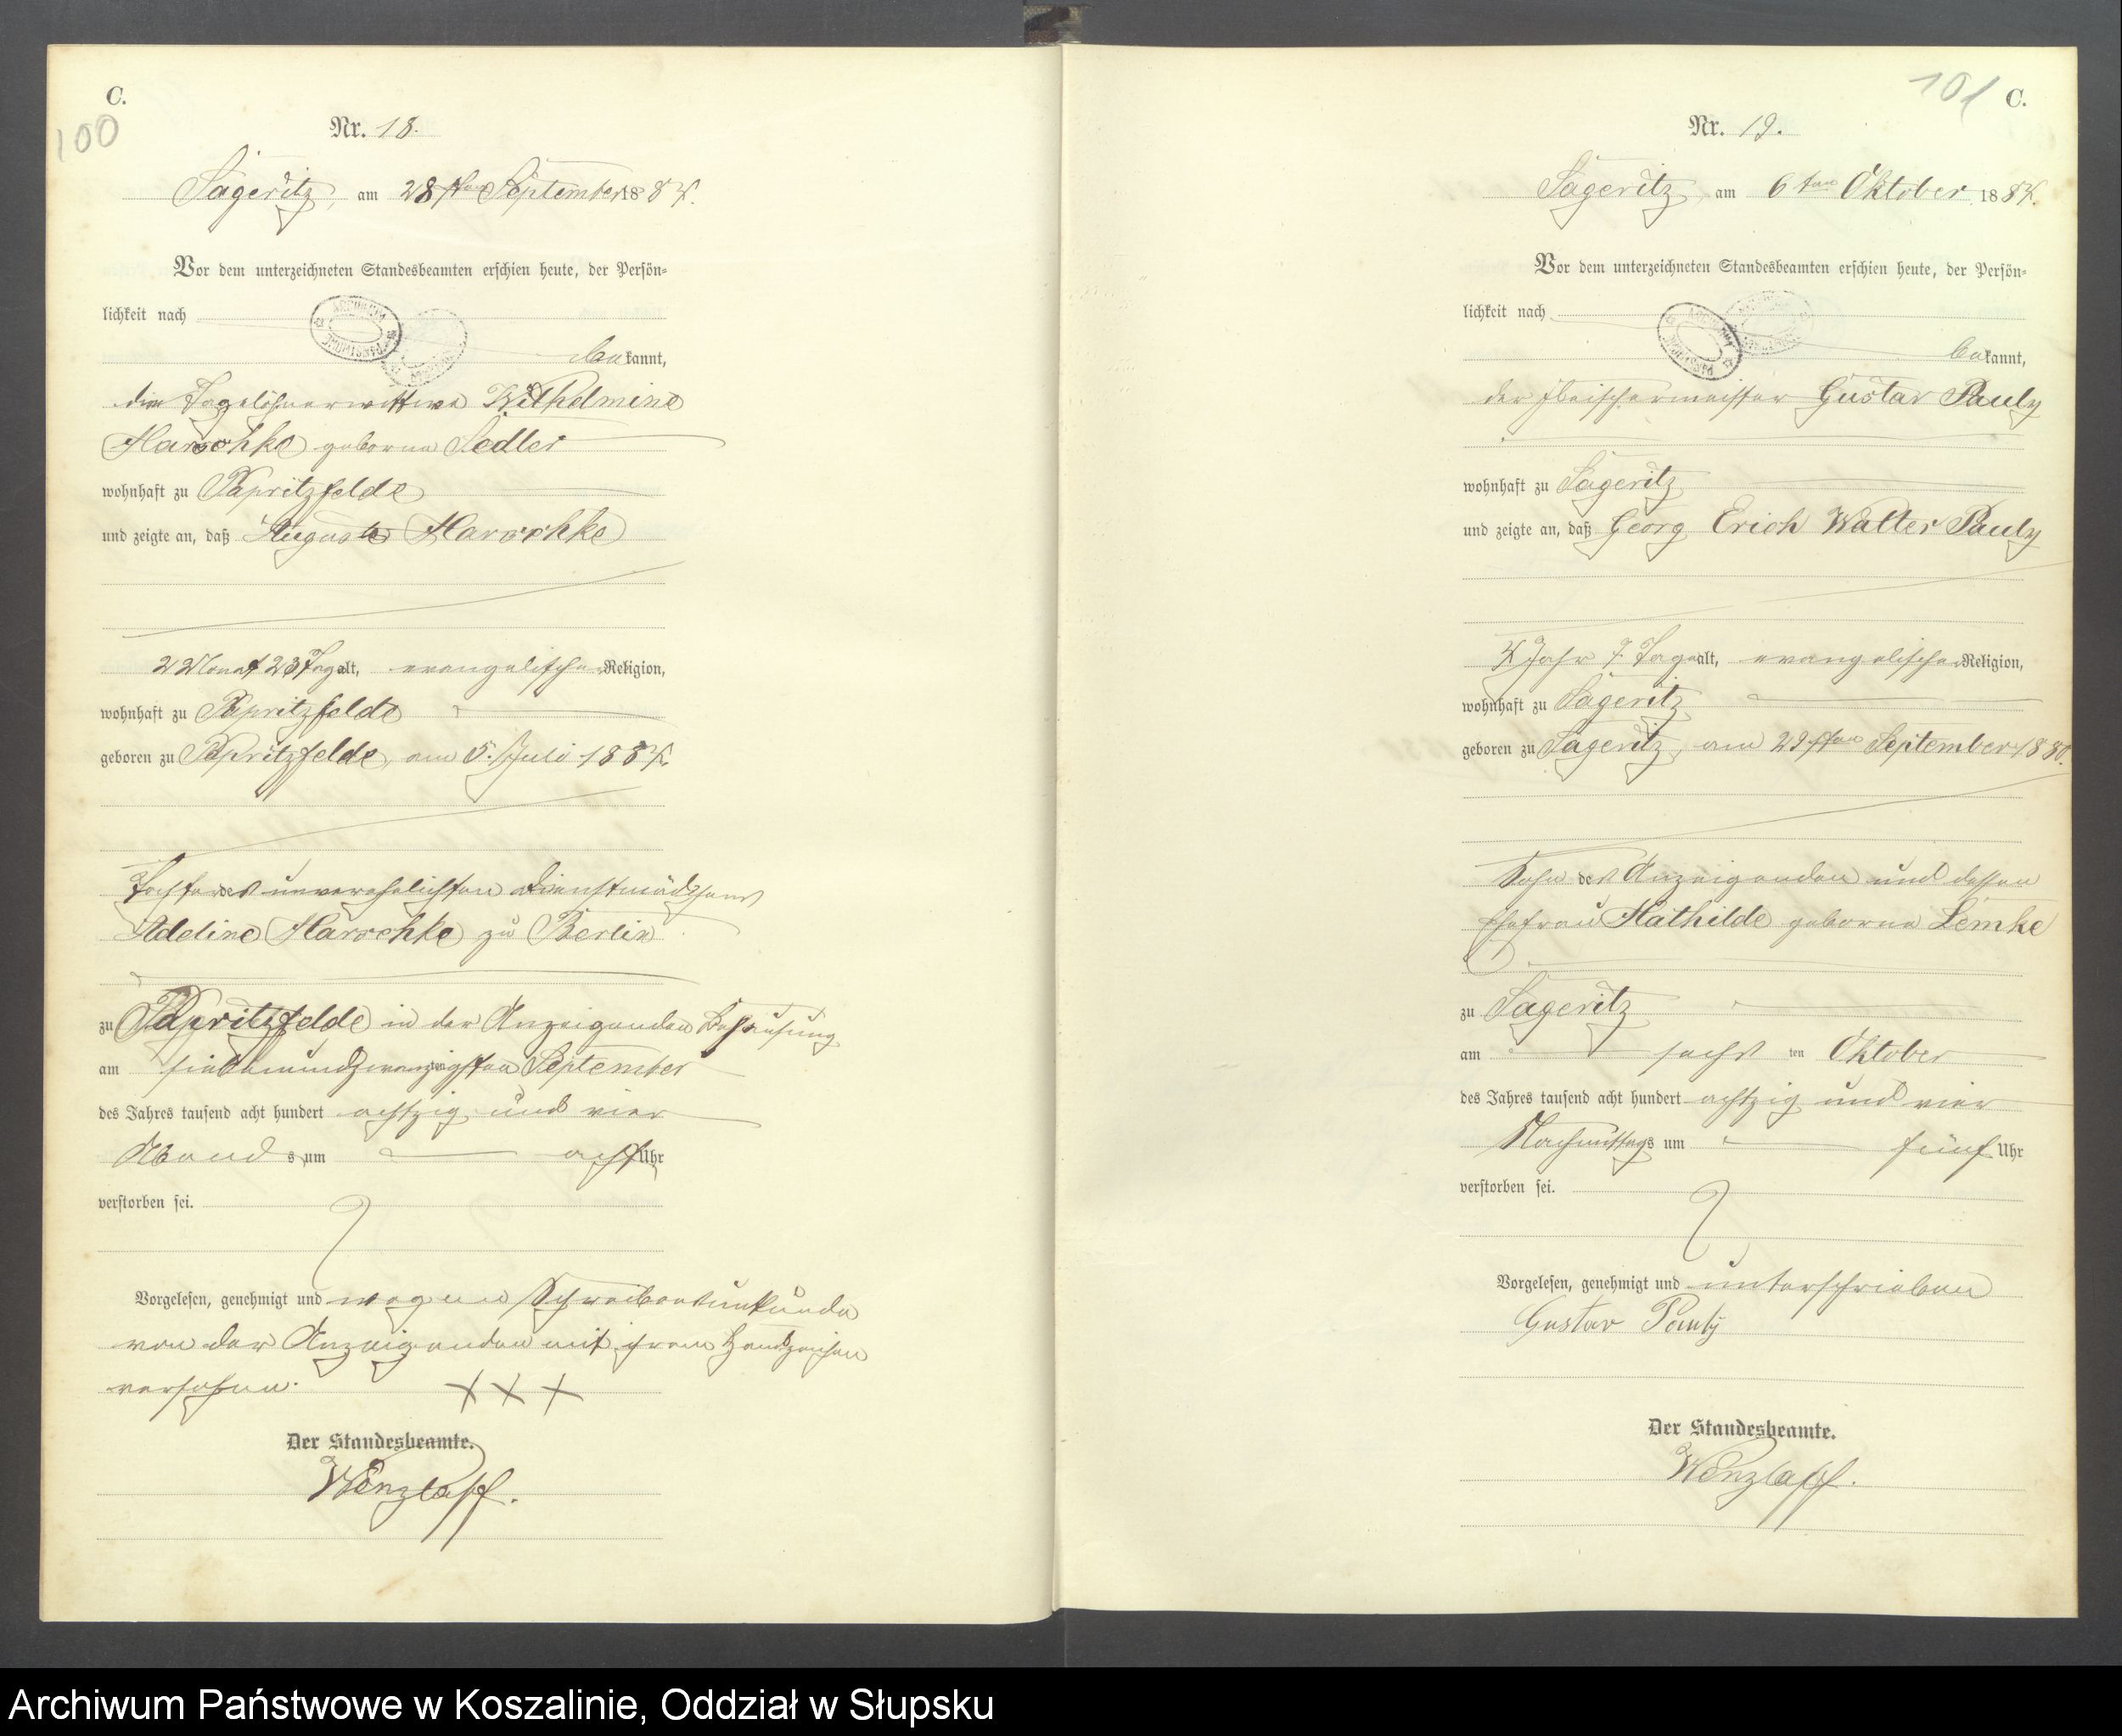 C.
100
Nr. 18.
Sageritz, am 28ten September 1884.
Vor dem unterzeichneten Standesbeamten erschien heute, der Persön-
lichkeit nach
bekannt,
die Tagelöhnerwittwe Wilhelmine
Harschke geborne Sedler
wohnhaft zu Papritzfelde
und zeigte an, daß Auguste Harschke
2 Monat 23 Tage alt, evangelischer Religion,
wohnhaft zu Papritzfelde
geboren zu Papritzfelde, am 5. Juli 1884.
Tochter der unverehelichten Dienstmädchens
Adeline Harschke zu Berlin
zu Papritzfelde in der Anzeigenden Behausung
am siebenundzwanzigsten September
des Jahres tausend acht hundert achtzig und vier
Abends um acht Uhr
verstorben sei.
Vorgelesen, genehmigt und wegen Schreibensunkunde
von der Anzeigenden mit ihrem Handzeichen
versehen. XXX
Der Standesbeamte.
Wenzlaff.
101 C.
Nr. 19.
Sageritz, am 6ten Oktober 1884.
Vor dem unterzeichneten Standesbeamten erschien heute, der Persön-
lichkeit nach
bekannt,
der Fleischermeister Gustav Pauly
wohnhaft zu Sageritz
und zeigte an, daß Georg Erich Walter Pauly
4 Jahr 7 Tage alt, evangelischer Religion,
wohnhaft zu Sageritz
geboren zu Sageritz, am 29ten September 1880.
Sohn des Anzeigenden und dessen
Ehefrau Mathilde geborne Lemke
zu Sageritz
am sechsten Oktober
des Jahres tausend acht hundert achtzig und vier
Nachmittags um fünf Uhr
verstorben sei.
Vorgelesen, genehmigt und unterschrieben
Gustav Pauly
Der Standesbeamte.
Wenzlaff.
Archiwum Państwowe w Koszalinie, Oddział w Słupsku